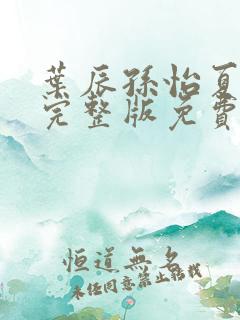 葉辰孫怡夏
完整版免費
恒道無名
未經同意禁止轉載